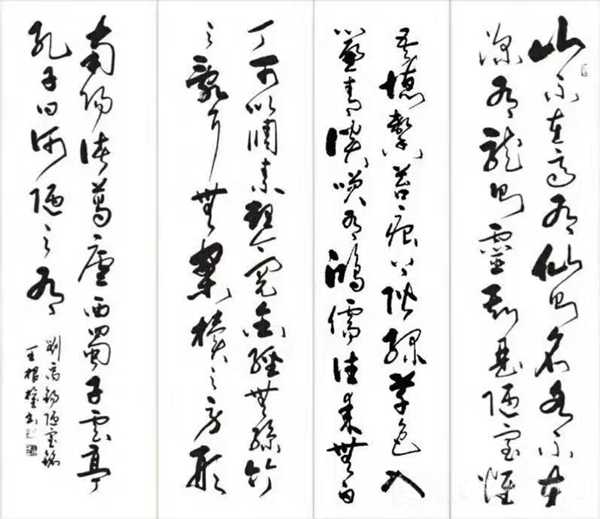 山不在高有仙則名水不在
深有龍則靈斯是陋室惟
吾德馨苔痕上階綠草色入
簾青談笑有鴻儒往來無白
丁可以調素琴閱金經無絲竹
之亂耳無案牘之勞形
南陽諸葛廬西蜀子雲亭
孔子曰何陋之有
劉禹錫陋室銘
王根權書